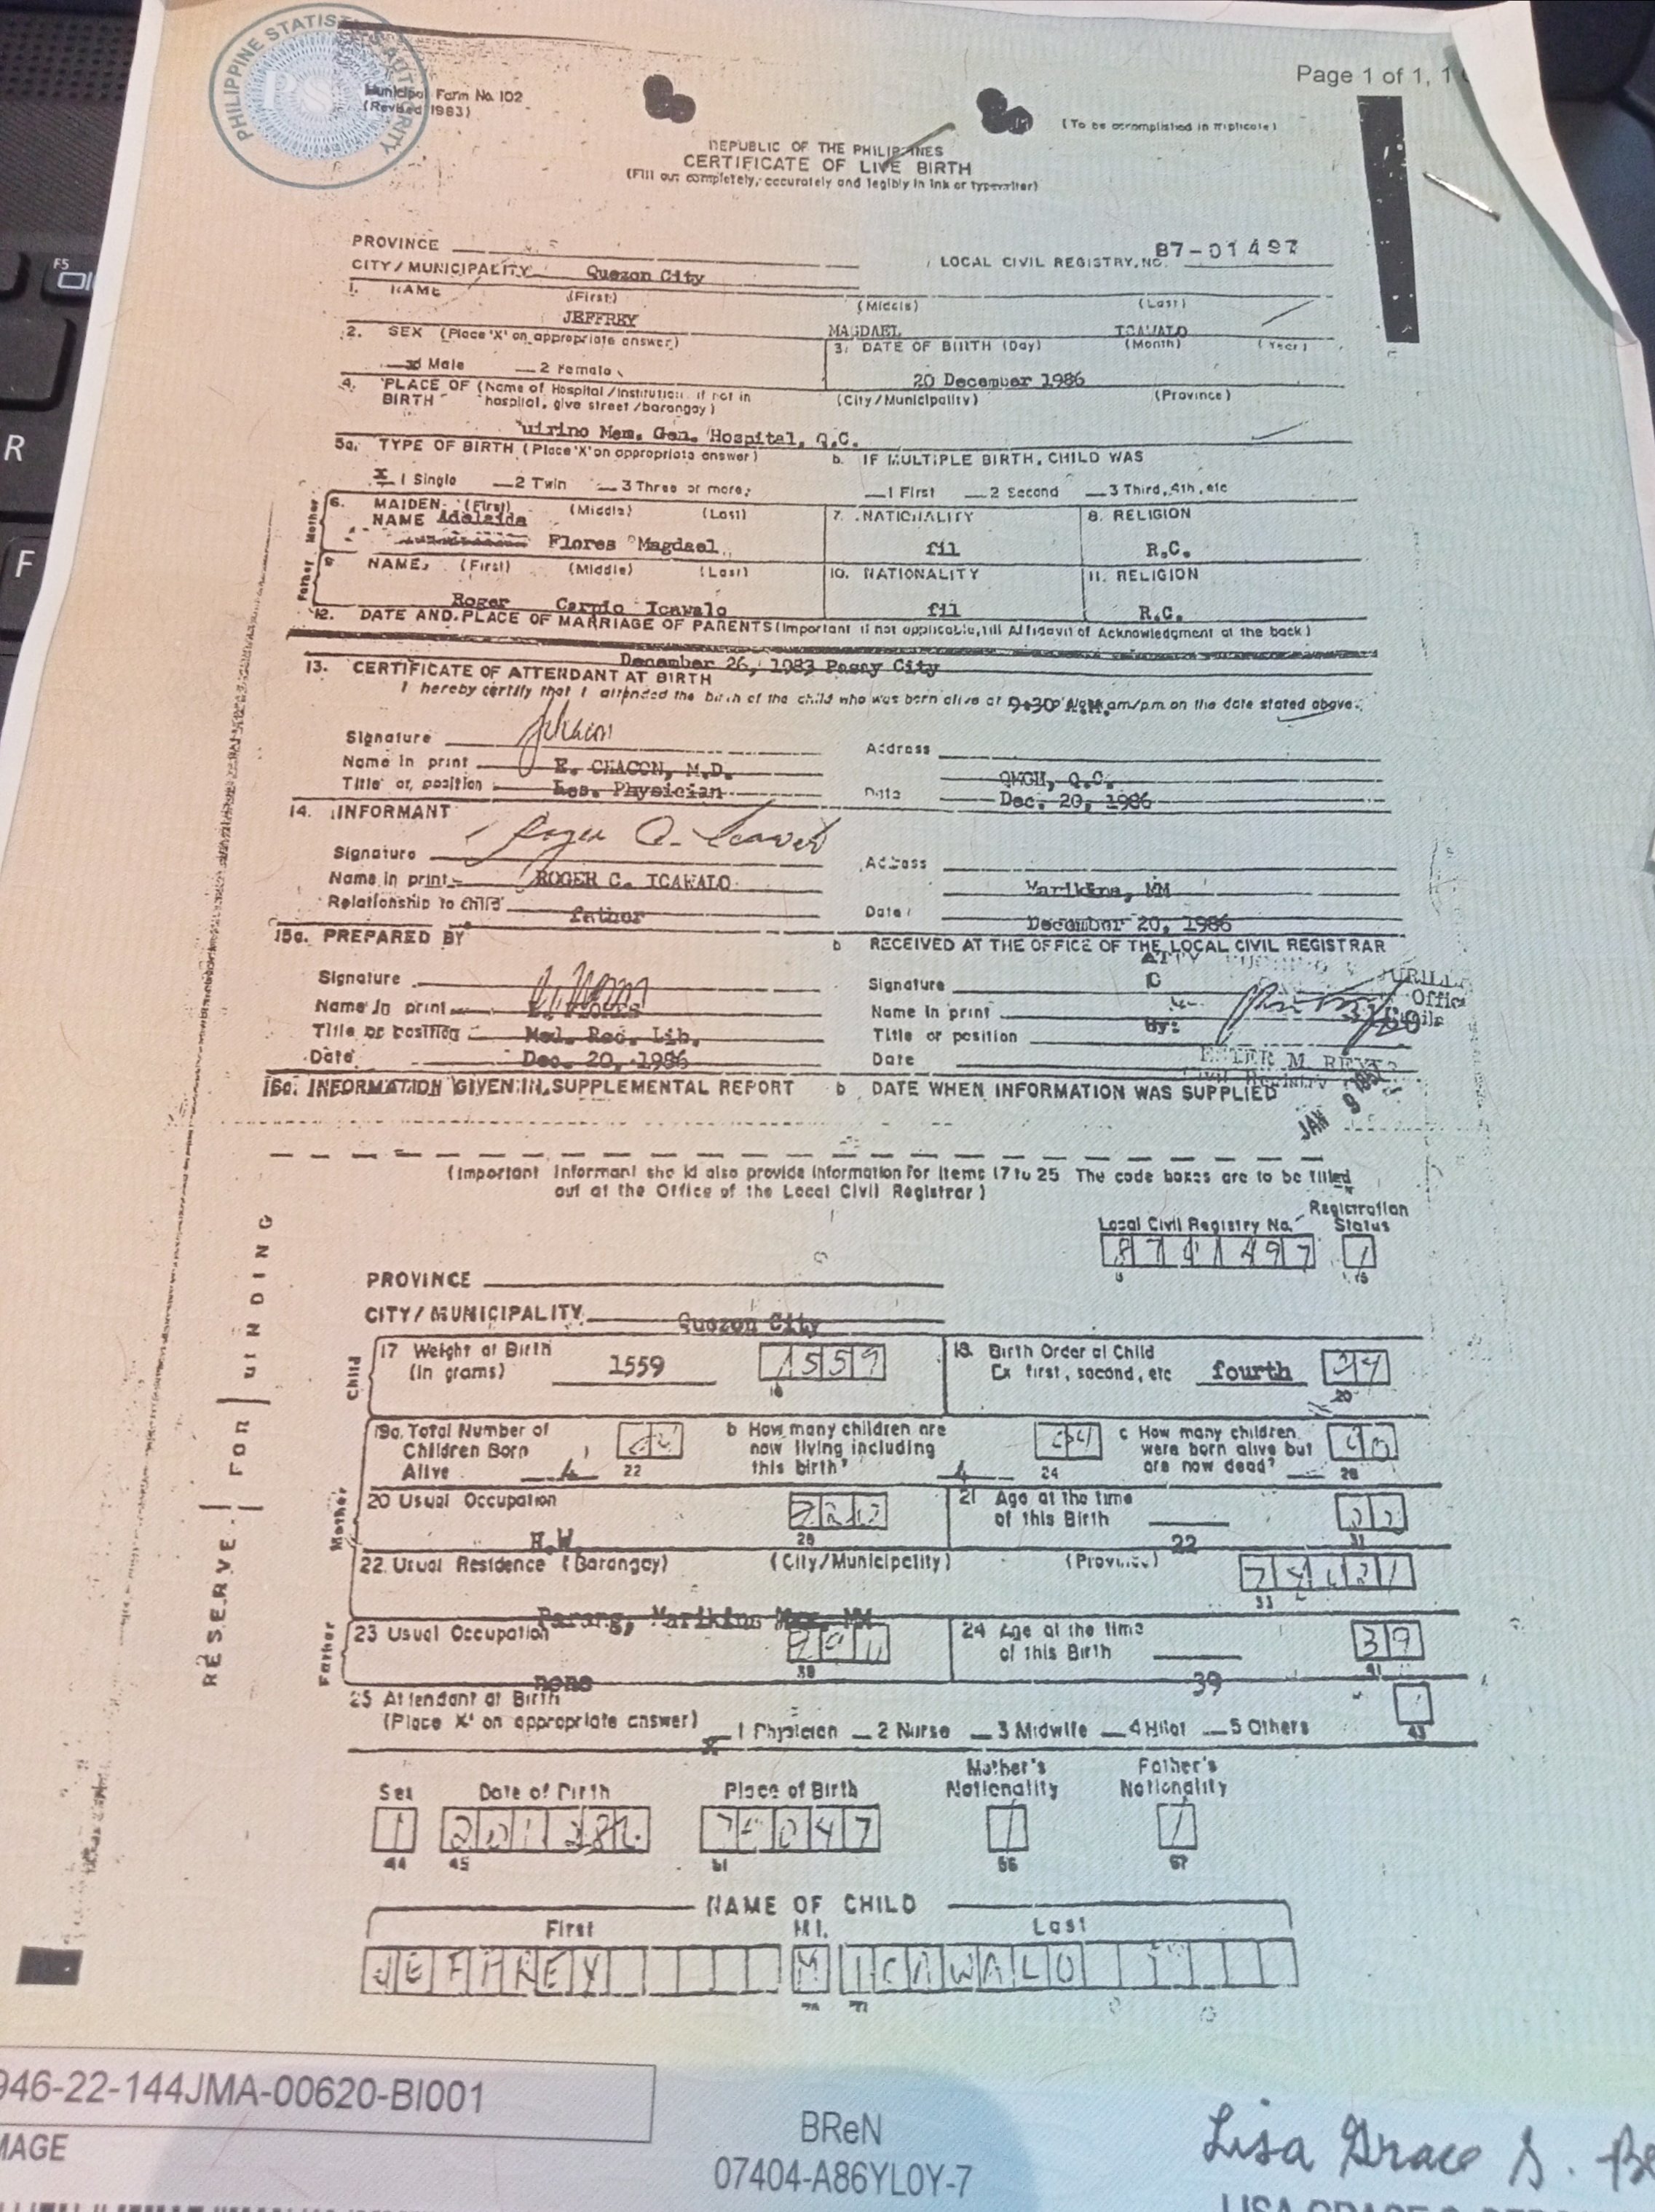 PHILIPPINE STATISTICS AUTHORITY
Page 1 of 1, 1
Municipal Form No. 102
(Revised 1983)
(To be accomplished in triplicate)
REPUBLIC OF THE PHILIPPINES
CERTIFICATE OF LIVE BIRTH
(Fill out completely, accurately and legibly in ink or typewriter)
PROVINCE
LOCAL CIVIL REGISTRY, NO. 87-01497
CITY/MUNICIPALITY Quezon City
1. NAME (First) (Middle) (Last)
JEFFREY MAGDAEL ICAWALO
2. SEX (Place 'X' on appropriate answer) 3. DATE OF BIRTH (Day) (Month) (Year)
Male 2 Female
20 December 1986
4. PLACE OF BIRTH (Name of Hospital/Institution. if not in hospital, give street/barangay) (City/Municipality) (Province)
uirino Mem. Gen. Hospital, Q.C.
5a. TYPE OF BIRTH (Place 'X' on appropriate answer) b. IF MULTIPLE BIRTH, CHILD WAS
x 1 Single 2 Twin 3 Three or more 1 First 2 Second 3 Third, 4th, etc
Mother
6. MAIDEN NAME (First) (Middle) (Last) 7. NATIONALITY 8. RELIGION
Adelaida Flores Magdael fil R.C.
Father
9 NAME (First) (Middle) (Last) 10. NATIONALITY 11. RELIGION
Roger Carpio Icawalo fil R.C.
12. DATE AND PLACE OF MARRIAGE OF PARENTS (Important if not applicable, fill Affidavit of Acknowledgment at the back)
December 26, 1983 Pasay City
13. CERTIFICATE OF ATTENDANT AT BIRTH
I hereby certify that I attended the birth of the child who was born alive at 9:30 A.M. am/p.m on the date stated above.
Signature Address
Name in print E. CHACON, M.D. QMGH, Q.C.
Title or position Res. Physician Date Dec. 20, 1986
14. INFORMANT
Signature Address
Name in print ROGER C. ICAWALO Marikina, MM
Relationship to child father Date December 20, 1986
15a. PREPARED BY b RECEIVED AT THE OFFICE OF THE LOCAL CIVIL REGISTRAR
ATTY
Signature Signature
Name in print Name in print
Title or position Med. Rec. Lib. Title or position By:
Date Dec. 20, 1986 Date
Civil Registry
16a. INFORMATION GIVEN IN SUPPLEMENTAL REPORT b DATE WHEN INFORMATION WAS SUPPLIED
JAN 9
(Important Informant should also provide information for items 17 to 25 The code boxes are to be filled
out at the Office of the Local Civil Registrar)
Local Civil Registry No. Registration Status
PROVINCE
CITY/MUNICIPALITY Quezon City
RESERVE FOR BINDING
Child
17 Weight at Birth (In grams) 1559 1559
18. Birth Order of Child Ex first, second, etc fourth 04
Mother
19a. Total Number of Children Born Alive 4
b How many children are now living including this birth? 4
c How many children were born alive but are now dead?
20 Usual Occupation H.W
21 Age at the time of this Birth 22
22. Usual Residence (Barangay) (City/Municipality) (Province)
Parang, Marikina MM
Father
23 Usual Occupation none
24 Age at the time of this Birth 39 39
25 Attendant at Birth
(Place 'X' on appropriate answer) x 1 Physician 2 Nurse 3 Midwife 4 Hilot 5 Others
Sex Date of Birth Place of Birth Mother's Nationality Father's Nationality
44 45 51 56 57
NAME OF CHILD
First M.I. Last
JEFFREY M ICAWALO
946-22-144JMA-00620-BI001
MAGE
BReN
07404-A86YL0Y-7
Lisa Grace S. Be